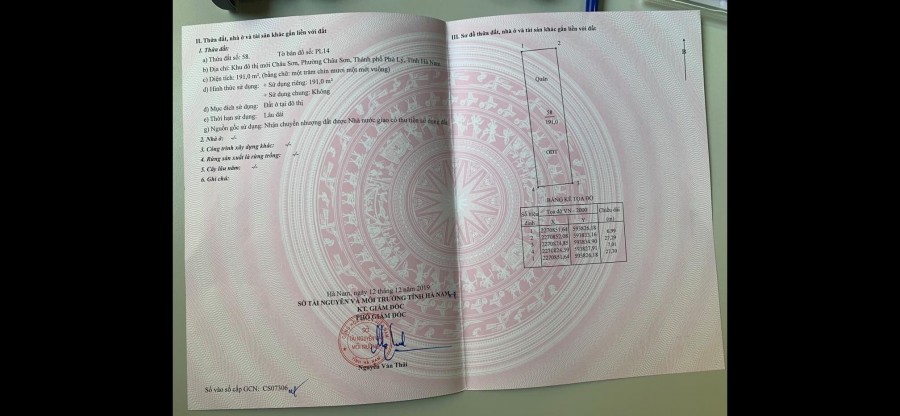 II. Thửa đất, nhà ở và tài sản khác gắn liền với đất
1. Thửa đất:
a) Thửa đất số: 58. Tờ bản đồ số: PL14
b) Địa chỉ: Khu đô thị mới Châu Sơn, Phường Châu Sơn, Thành phố Phủ Lý, Tỉnh Hà Nam
c) Diện tích: 191,0 m², (bằng chữ: một trăm chín mươi mốt mét vuông)
d) Hình thức sử dụng: + Sử dụng riêng: 191,0 m²
+ Sử dụng chung: Không
đ) Mục đích sử dụng: Đất ở tại đô thị
e) Thời hạn sử dụng: Lâu dài
g) Nguồn gốc sử dụng: Nhận chuyển nhượng đất được Nhà nước giao có thu tiền sử dụng đất
2. Nhà ở: -/-
3. Công trình xây dựng khác: -/-
4. Rừng sản xuất là rừng trồng: -/-
5. Cây lâu năm: -/-
6. Ghi chú:
Hà Nam, ngày 12 tháng 12 năm 2019
SỞ TÀI NGUYÊN VÀ MÔI TRƯỜNG TỈNH HÀ NAM
KT. GIÁM ĐỐC
PHÓ GIÁM ĐỐC
Nguyễn Văn Thái
Số vào sổ cấp GCN: CS07306
III. Sơ đồ thửa đất, nhà ở và tài sản khác gắn liền với đất
1 2
B
58
191,0
3
BẢNG KÊ TỌA ĐỘ
Số hiệu đỉnh Tọa độ VN - 2000 Chiều dài (m)
X Y